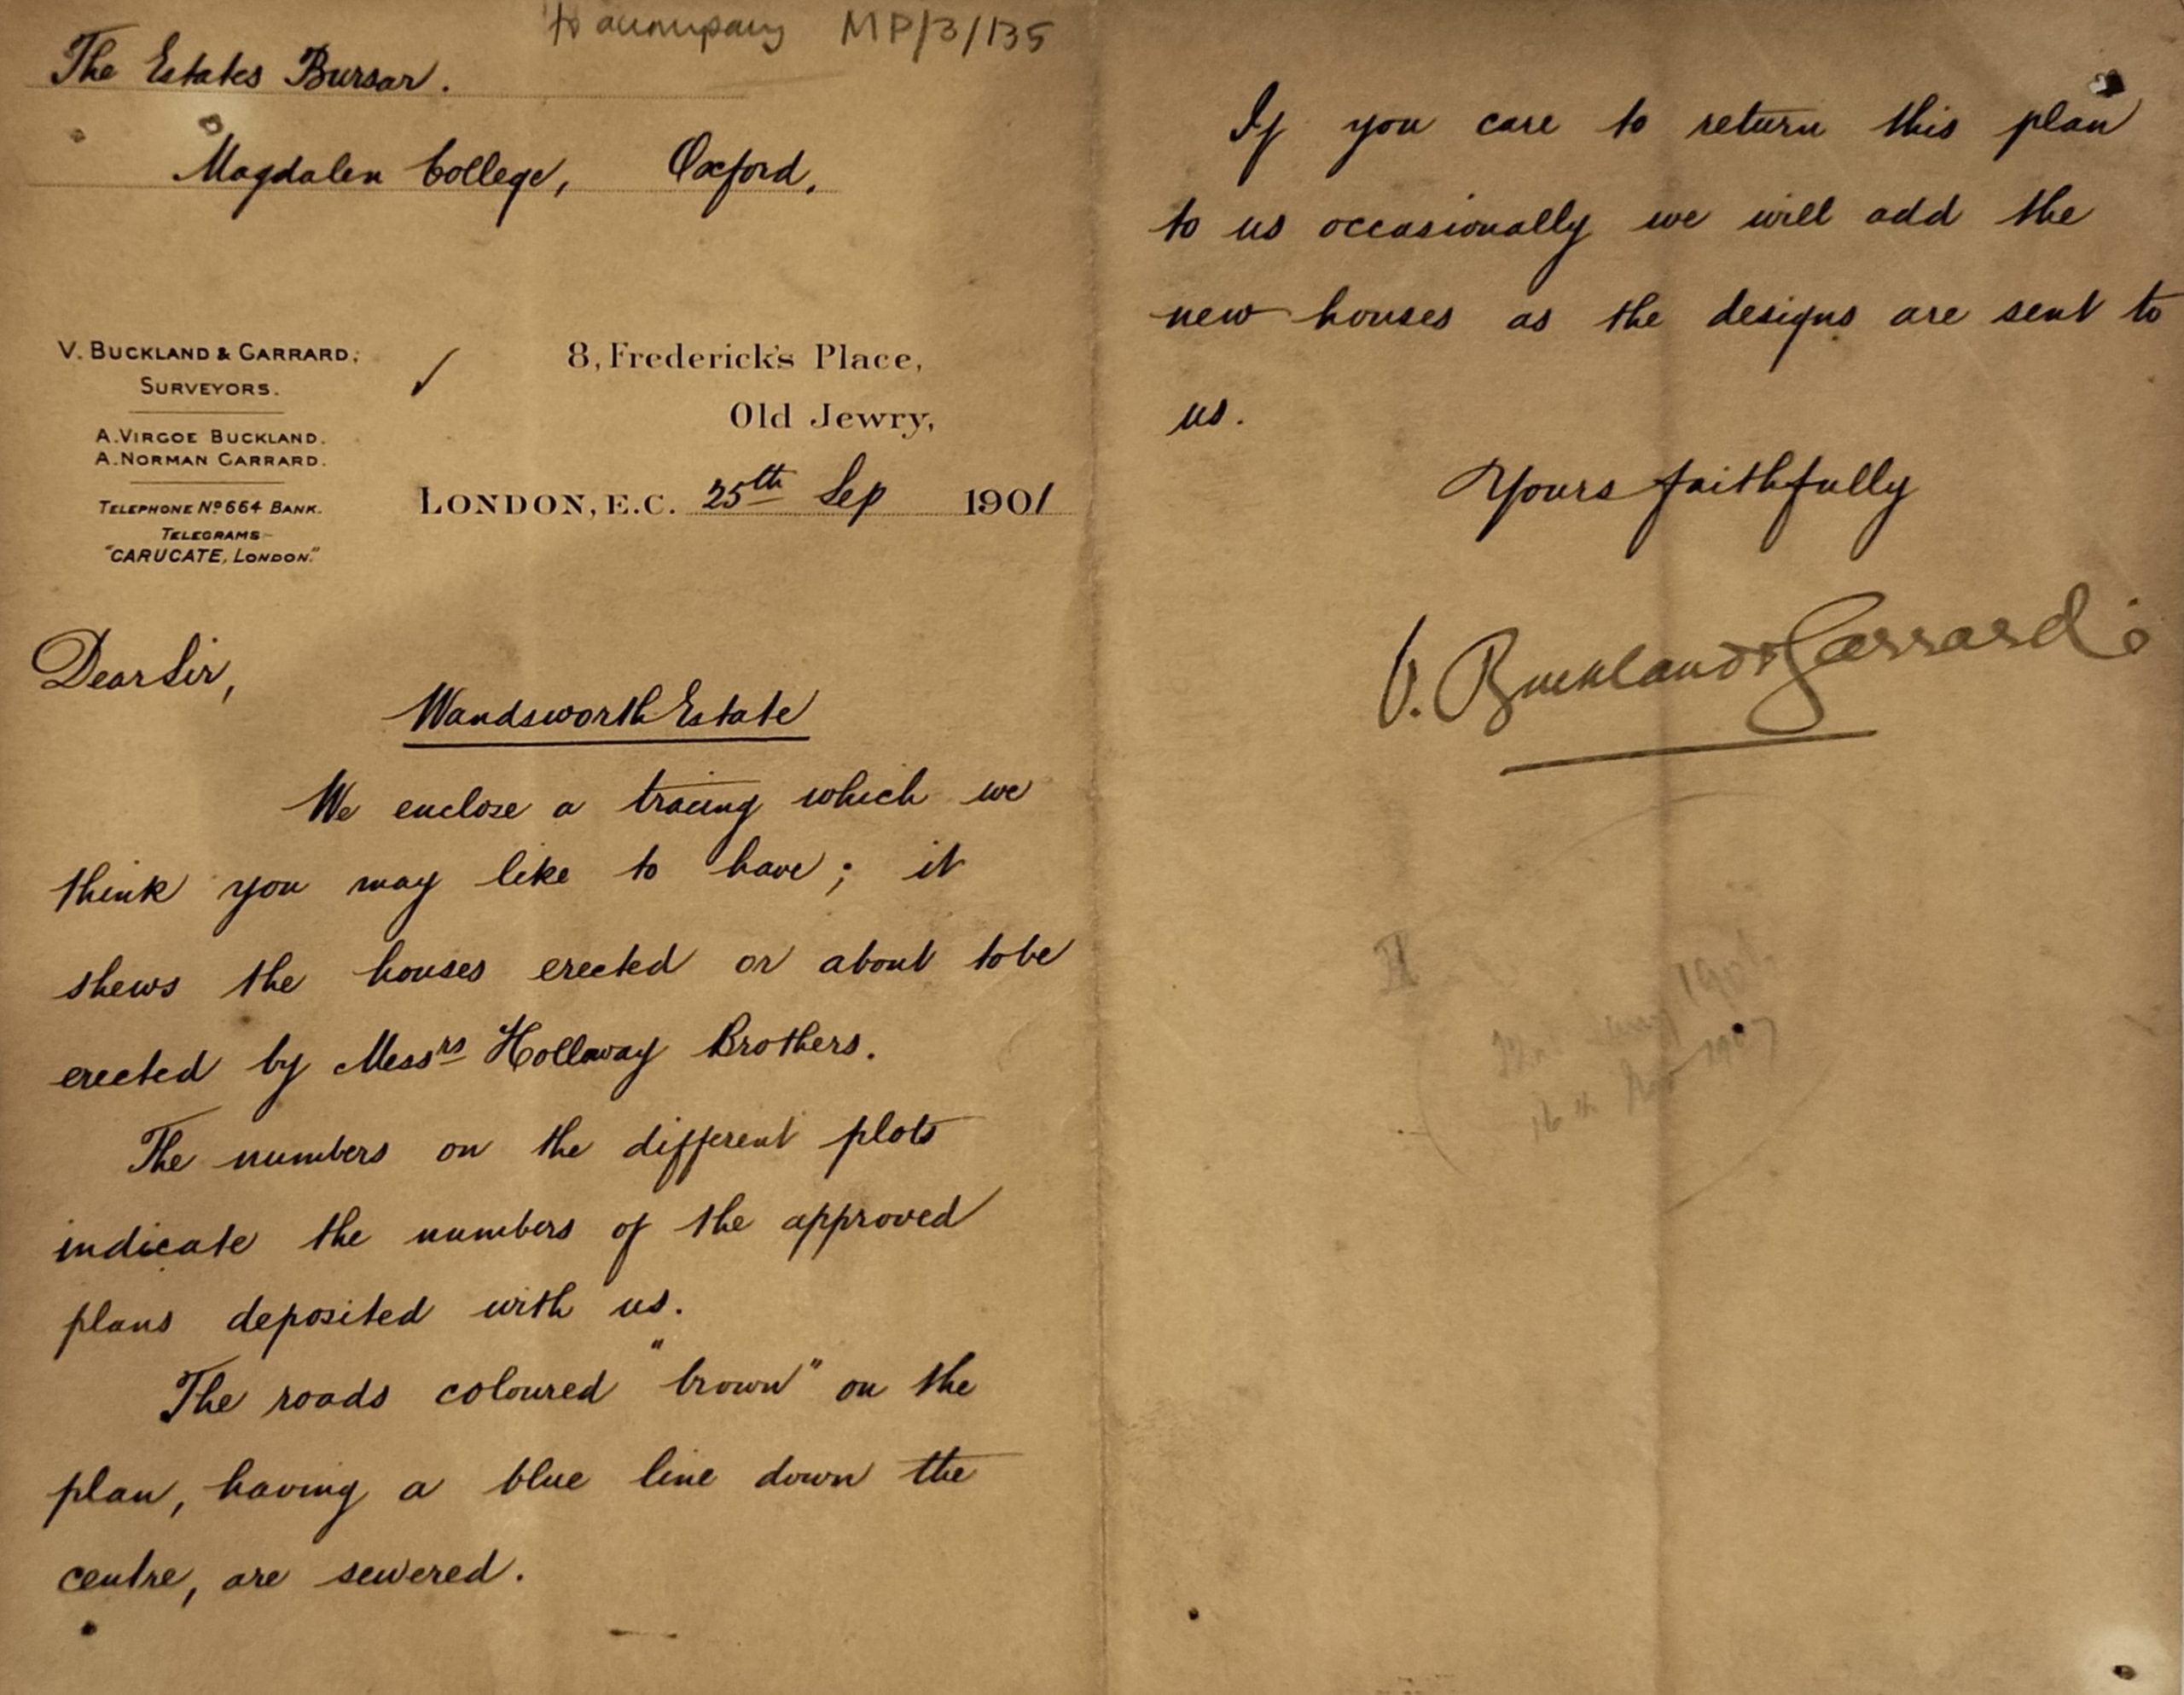 to accompany MP/3/135
The Estates Bursar.
Magdalen College, Oxford.
V. BUCKLAND & GARRARD,
SURVEYORS.
A. VIRGOE BUCKLAND.
A. NORMAN GARRARD.
TELEPHONE Nº 664 BANK.
TELEGRAMS-
"CARUCATE, LONDON."
8, Frederick's Place,
Old Jewry,
LONDON, E.C. 25th Sep 1901
Dear Sir,
Wandsworth Estate
We enclose a tracing which we
think you may like to have; it
shews the houses erected or about to be
erected by Messrs Holloway Brothers.
The numbers on the different plots
indicate the numbers of the approved
plans deposited with us.
The roads coloured "brown" on the
plan, having a blue line down the
centre, are sewered.
If you care to return this plan
to us occasionally we will add the
new houses as the designs are sent to
us.
Yours faithfully
V. Buckland & Garrard
16th Nov 1907